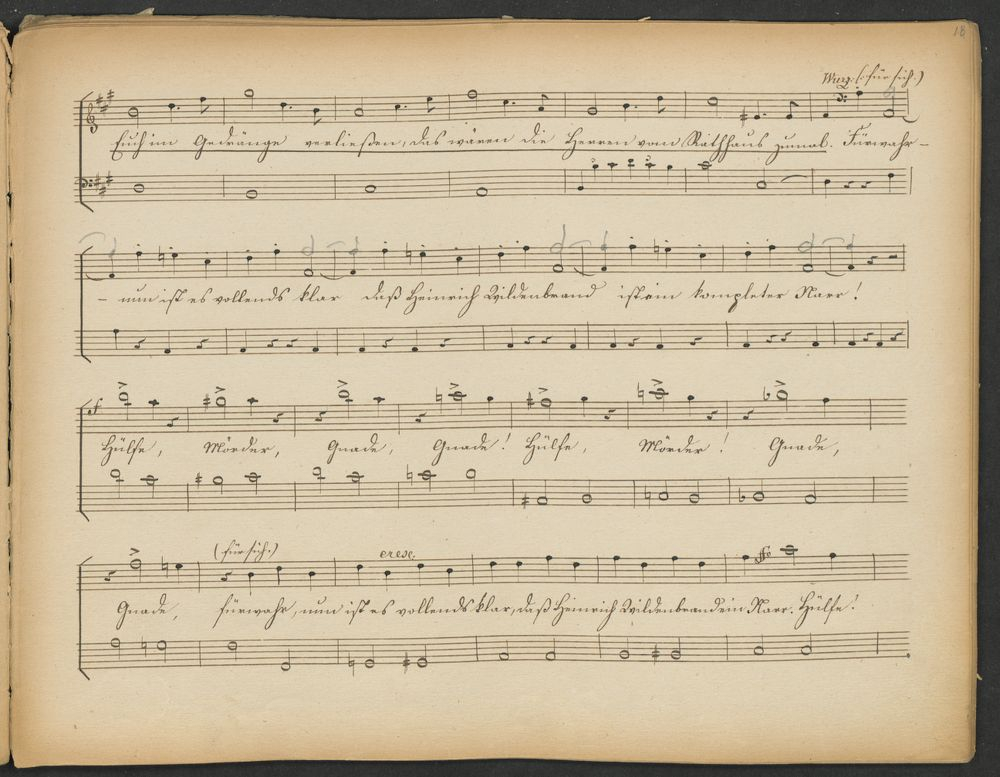 18
Wurz. (: für sich.)
Euch im Gedränge verließen, das wären die Herren vom Rathhaus zumal. Fürwahr –
– nun ist es vollends klar daß Heinrich Wildenbrand ist ein kompleter Narr!
f
Hülfe, Mörder, Gnade, Gnade! Hülfe, Mörder! Gnade,
(für sich.) cresc. ffo
Gnade, fürwahr, nun ist es vollends klar, daß Heinrich Wildenbrand ein Narr. Hülfe!